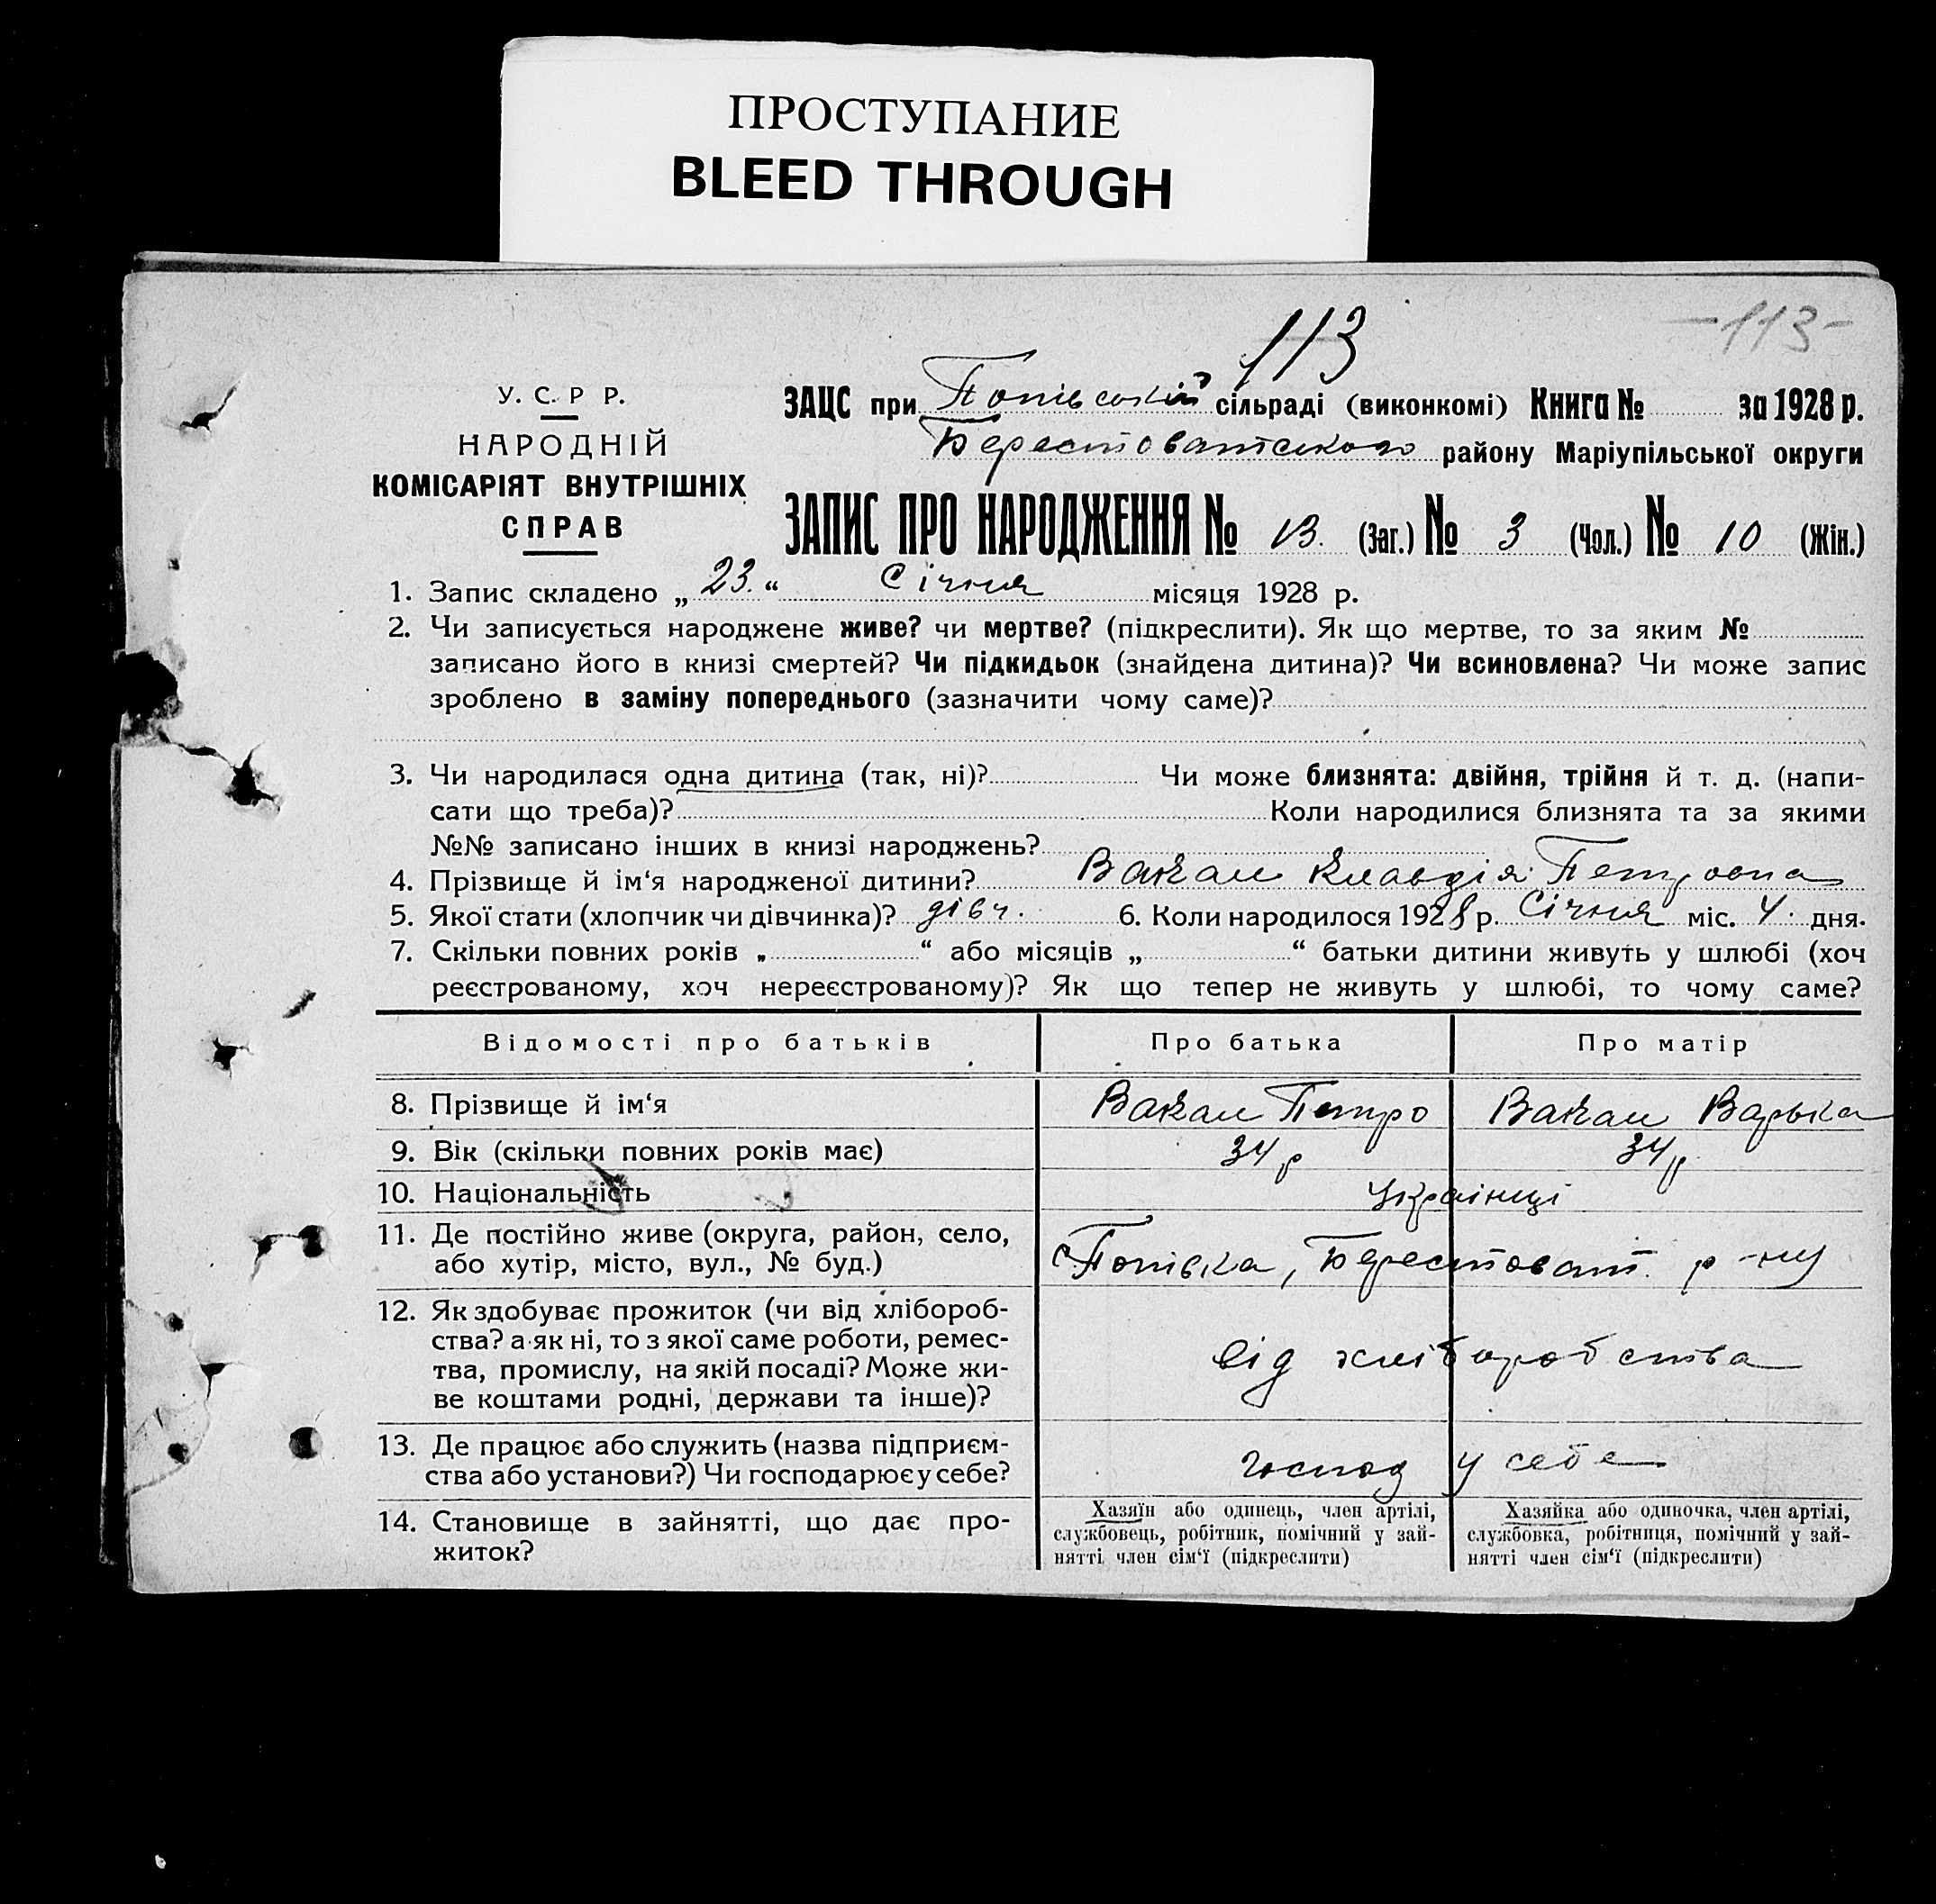 ПРОСТУПАНИЕ
BLEED THROUGH
113
-113-
У. С. Р Р.
НАРОДНІЙ
КОМІСАРІЯТ ВНУТРІШНІХ
СПРАВ
ЗАЦС при Попівській сільраді (виконкомі) Книга № за 1928 р.
Берестоватського району Маріупільської округи
ЗАПИС ПРО НАРОДЖЕННЯ № 13. (Заг.) № 3 (Чол.) № 10 (Жін.)
1. Запис складено „ 23. “ Січня місяця 1928 р.
2. Чи записується народжене живе? чи мертве? (підкреслити). Як що мертве, то за яким №
записано його в книзі смертей? Чи підкидьок (знайдена дитина)? Чи всиновлена? Чи може запис
зроблено в заміну попереднього (зазначити чому саме)?
3. Чи народилася одна дитина (так, ні)? Чи може близнята: двійня, трійня й т. д. (напи-
сати що треба)? Коли народилися близнята та за якими
№№ записано інших в книзі народжень?
4. Прізвище й ім‘я народженої дитини? Вакал Клавдія Петровна
5. Якої стати (хлопчик чи дівчинка)? дівч. 6. Коли народилося 1928 р. Січня міс. 4. дня.
7. Скільки повних років „ “ або місяців „ “ батьки дитини живуть у шлюбі (хоч
реєстрованому, хоч нереєстрованому)? Як що тепер не живуть у шлюбі, то чому саме?
Відомості про батьків Про батька Про матір
8. Прізвище й ім‘я Вакал Петро Вакал Варька
9. Вік (скільки повних років має) 34 р 34 р
10. Національність Українці
11. Де постійно живе (округа, район, село,
або хутір, місто, вул., № буд.) с Попівка, Берестоват. р-ну
12. Як здобуває прожиток (чи від хлібороб-
ства? а як ні, то з якої саме роботи, ремес-
тва, промислу, на якій посаді? Може жи-
ве коштами родні, держави та інше)? від хліборобства
13. Де працює або служить (назва підприєм-
ства або установи?) Чи господарює у себе? господ у себе
14. Становище в зайнятті, що дає про-
житок?
Хазяїн або одинець, член артілі,
службовець, робітник, помічний у зай-
нятті член сім‘ї (підкреслити)
Хазяйка або одиночка, член артілі,
службовка, робітниця, помічний у зай-
нятті член сім‘ї (підкреслити)